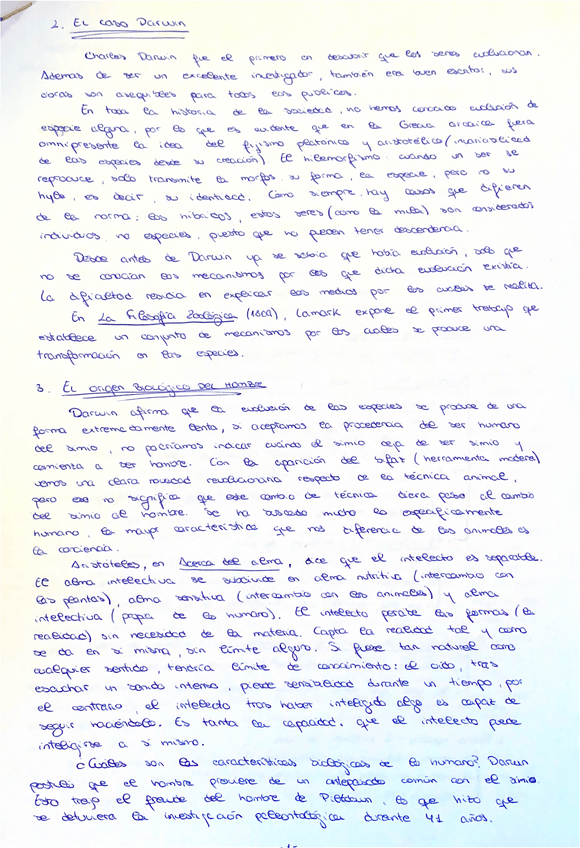 2. EL CASO DARWIN
Charles Darwin fue el primero en descubrir que los seres evolucionan.
Ademas de ser un excelente investigador, también era buen escritor, sus
obras son asequibles para todos los públicos.
En toda la historia de la sociedad, no hemos conocido evolución de
especie alguna, por lo que es evidente que en la Grecia arcaica fuera
omnipresente la idea del fijismo platónico y aristotélico (invariabilidad
de las especies desde su creación) El hilemorfismo: cuando un ser se
reproduce, solo transmite la morfos, su forma, la especie, pero no su
hyle, es decir, su identidad. Como siempre, hay casos que difieren
de la norma: los híbridos, estos seres (como la mula) son considerados
individuos no especies, puesto que no pueden tener descendencia.
Desde antes de Darwin ya se sabía que había evolución, solo que
no se conocían los mecanismos por los que dicha evolución existía.
La dificultad residía en explicar los medios por los cuales se realiza.
En La Filosofía Zoológica (1809), Lamark expone el primer trabajo que
establece un conjunto de mecanismos por los cuales se produce una
transformación en las especies.
3. EL ORIGEN BIOLÓGICO DEL HOMBRE
Darwin afirma que la evolución de las especies se produce de una
forma extremadamente lenta, si aceptamos la procedencia del ser humano
del simio, no podríamos indicar cuándo el simio deja de ser simio y
comienta a ser hombre. Con la aparición del bifaz (herramienta madera)
vemos una clara novedad revolucionaria respecto de la técnica animal,
pero eso no significa que este cambio de técnica diera paso al cambio
del simio al hombre. Se ha buscado mucho lo específicamente
humano, la mayor característica que nos diferencia de los animales es
la conciencia.
Aristóteles, en Acerca del alma, dice que el intelecto es separable.
El alma intelectiva se subdivide en alma nutritiva (intercambio con
las plantas), alma sensitiva (intercambio con los animales) y alma
intelectiva (propia de lo humano). El intelecto percibe las formas (la
realidad) sin necesidad de la materia. Capta la realidad tal y como
se da en sí misma, sin límite alguno. Si fuese tan natural como
cualquier sentido, tendría límite de conocimiento: el oído, tras
escuchar un sonido intenso, pierde sensibilidad durante un tiempo, por
el contrario, el intelecto tras haber inteligido algo es capaz de
seguir haciéndolo. Es tanta la capacidad, que el intelecto puede
inteligirse a sí mismo.
¿Cuáles son las características biológicas de lo humano? Darwin
postuló que el hombre proviene de un antepasado común con el simio.
Esto trajo el fraude del hombre de Piltdown, lo que hizo que
se detuviera la investigación paleontológica durante 41 años.